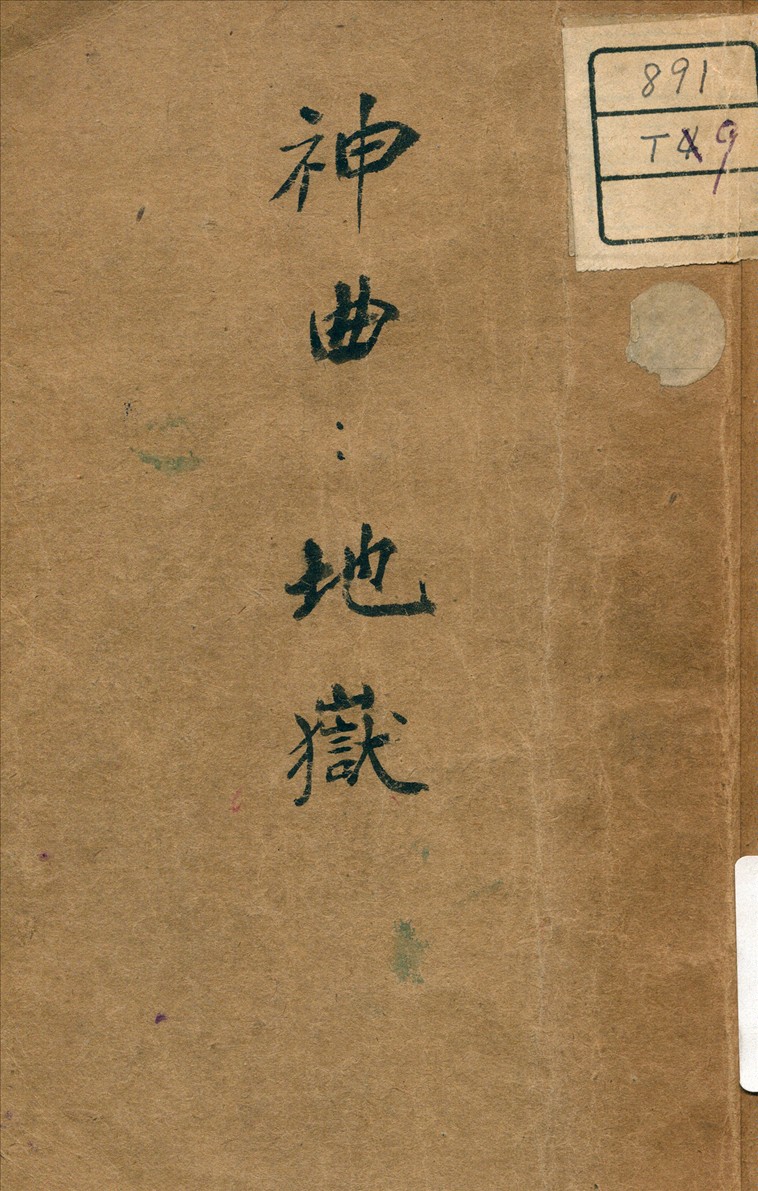 神曲:地獄
891
T49